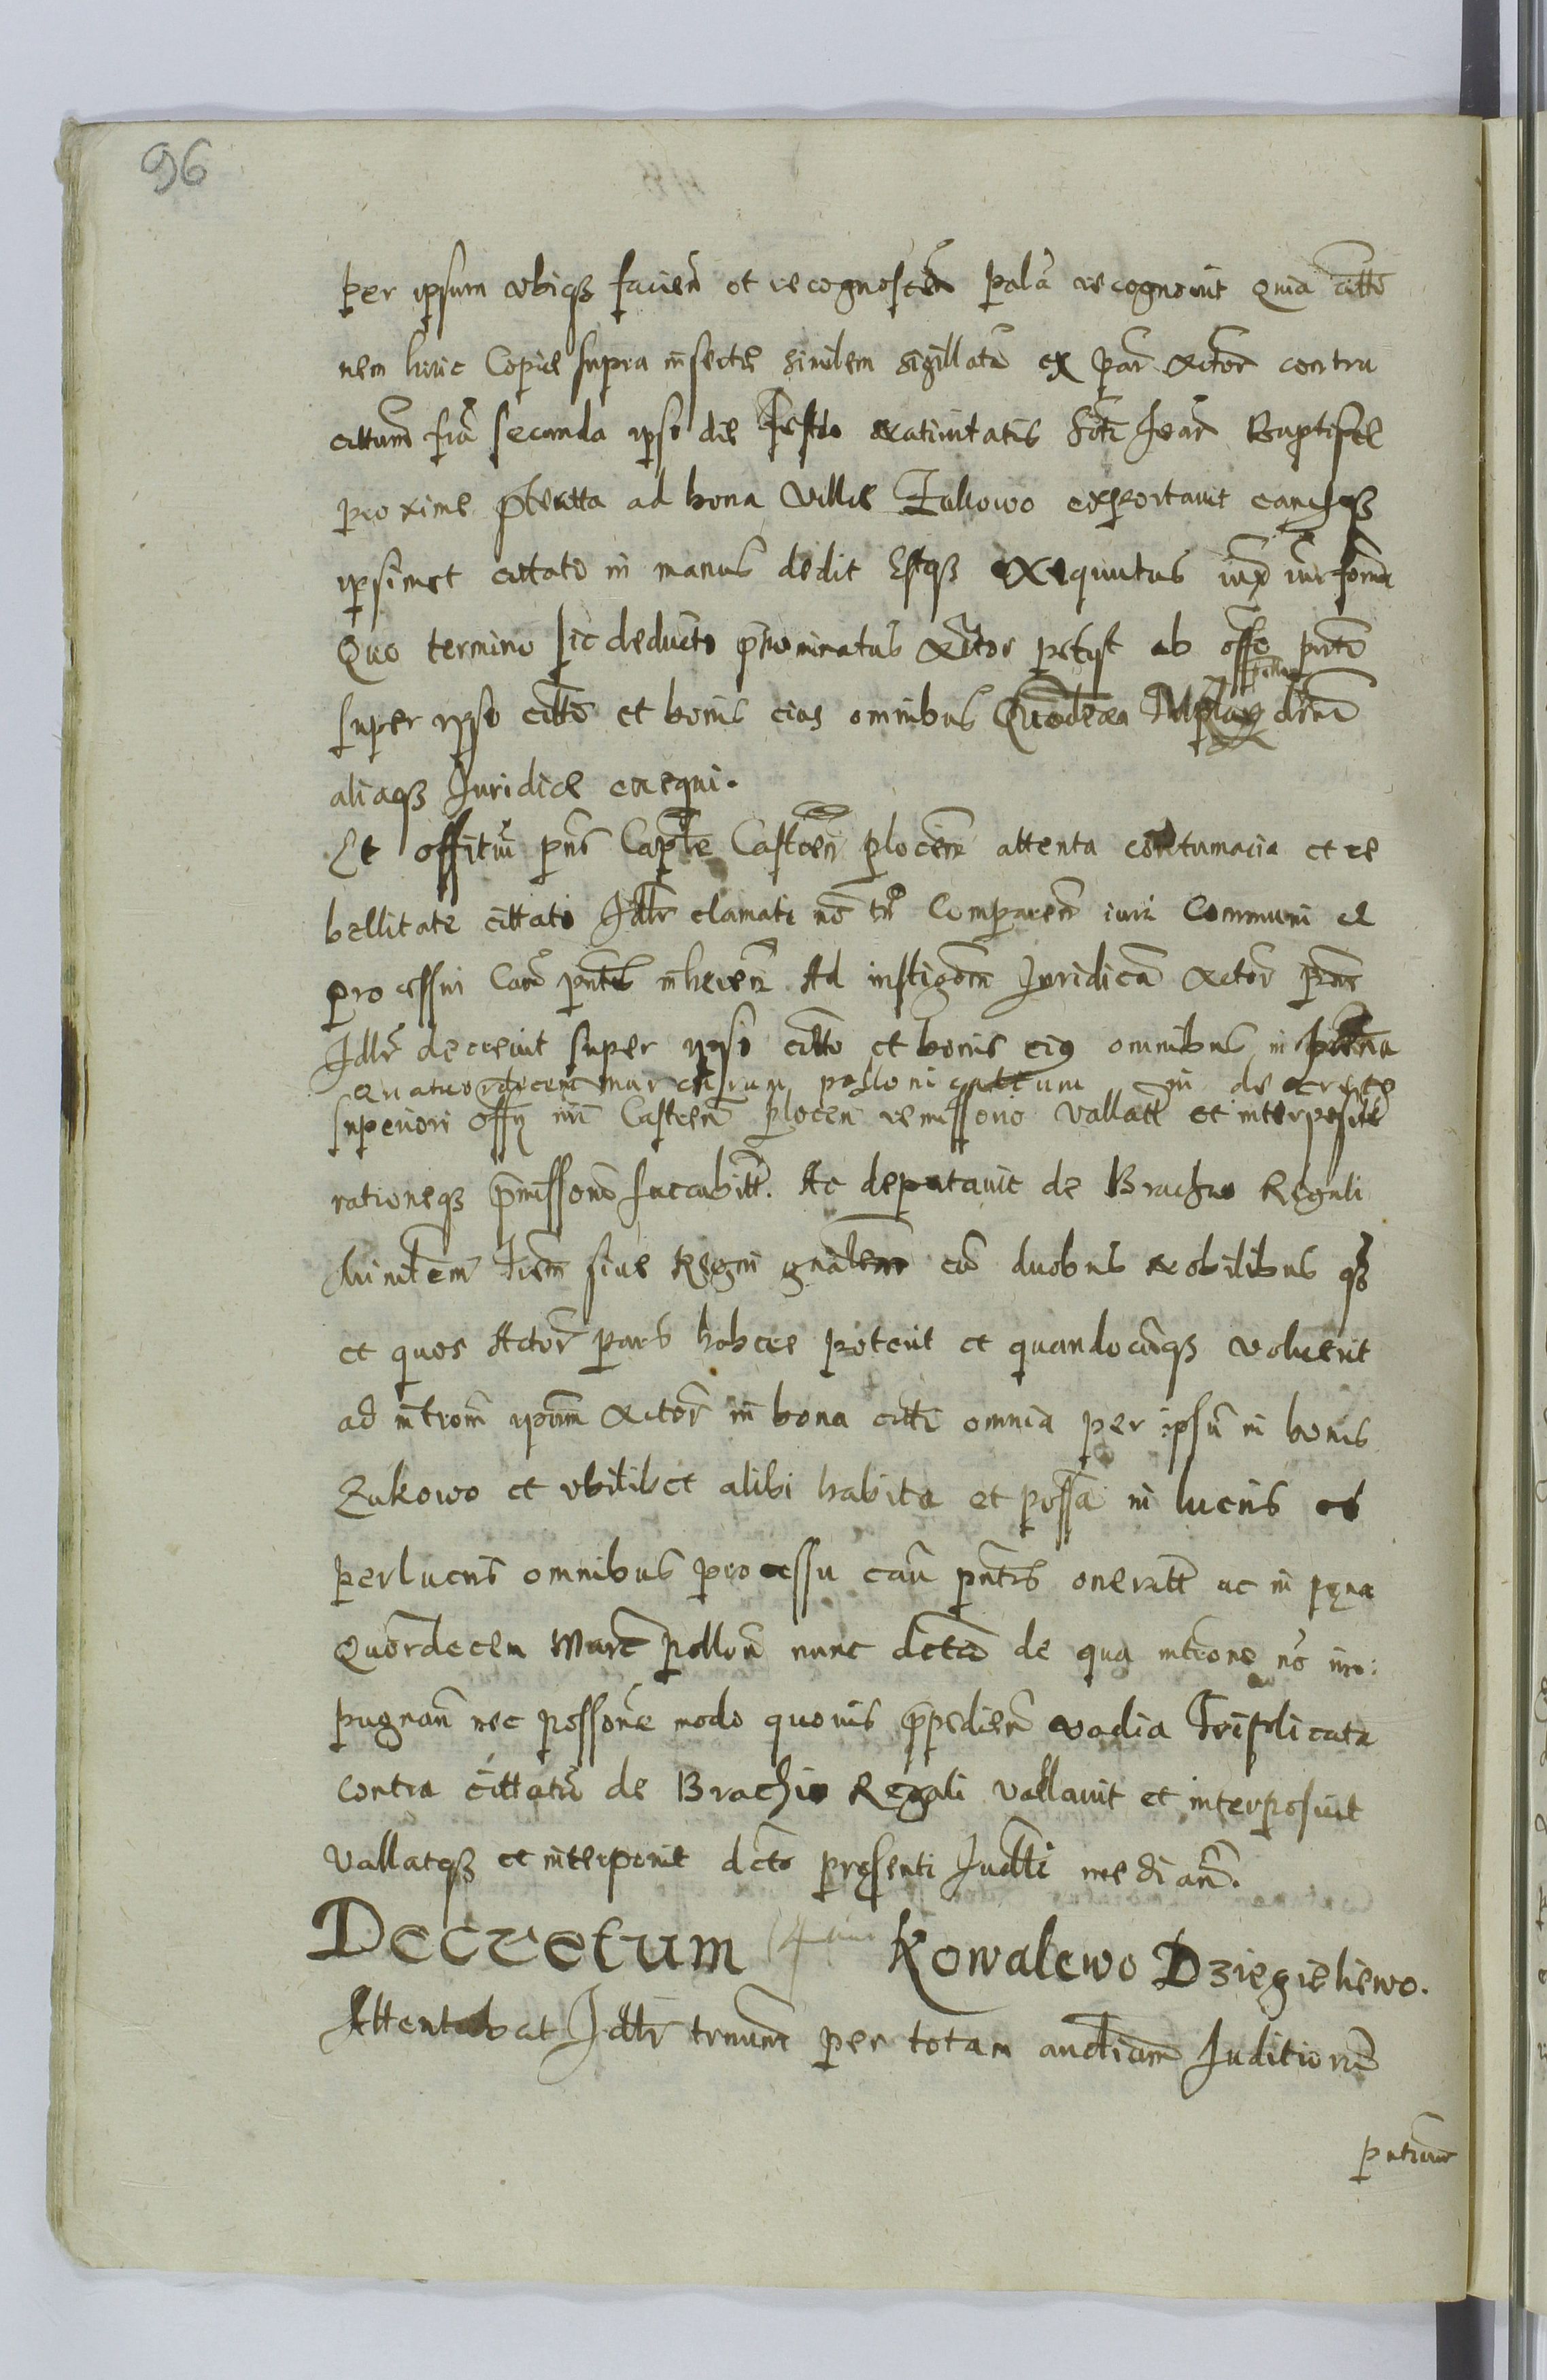 96
per ipsum ubiqꝫ facien̄ et recognoscēn palā recognovit Quia citto
nem huic Copie supra insertę similem sigillatā ex par̄ Actor̄ contra
cittum fr̄ia secunda ipso die festo Nativitatis Scti Joan̄ Baptistę
proxime pterita ad bona villę Zukowo exportavit eandqꝫ
ipsimet cittato in manus dedit Estqꝫ exequutus iux̄ iur̄ formā
Quo termino sic deducto p̄nominatus Actor petyt ab offo pnti
super ipso citto et bonis eius omnibus pollon̄ decni
aliaqꝫ Juridice exequi.
Et offitiū pn̄s Capłe Castren̄ plocen̄ attenta contumacia et re
bellitate cittati Jdlr̄ clamati nō tn̄ Comparen̄ iuri Communi et
processui Cau pntis inheren̄ Ad instigōem Juridicā Actor̄ pn̄s
Jdlr̄ decrevit super ipso citto et bonis eiꝰ omnibus in poena
Quatuordecem marcarum pollonicalium in decreto
superiori offy nri Castren̄ plocen̄ remissorio vallatt et interposite
rationeqꝫ p̄missorum succubitt. Ac deputavit de Brachio Regali
Ministem Trēm sive Regni gnālem cū duobus Nobilibus qꝫ
et quos Actor̄ pars habere poterit et quandocunqꝫ voluerit
ad introm̄ ipsum Actor̄ in bona citti omnia per ipsū in bonis
Zukowo et ubilibet alibi habita et possa in lucris et
perlucris omnibus processu cau pntis oneritt ac in pęna
Quordecem Marc̄ pollon̄ nunc dicta de qua intrōne nō im:
pugnan̄ nec possorie modo quovis p̄pedien̄ vadia Triplicata
contra cittatū de Brachio Regali vallavit et interposuit
vallatqꝫ et interponit dcto pręsenti Judtti median̄.
Decretum Kowalewo Dziegieliewo.
Attentabat Jdlr̄ trmum̄ per totam audtiam Juditiorū
pntium